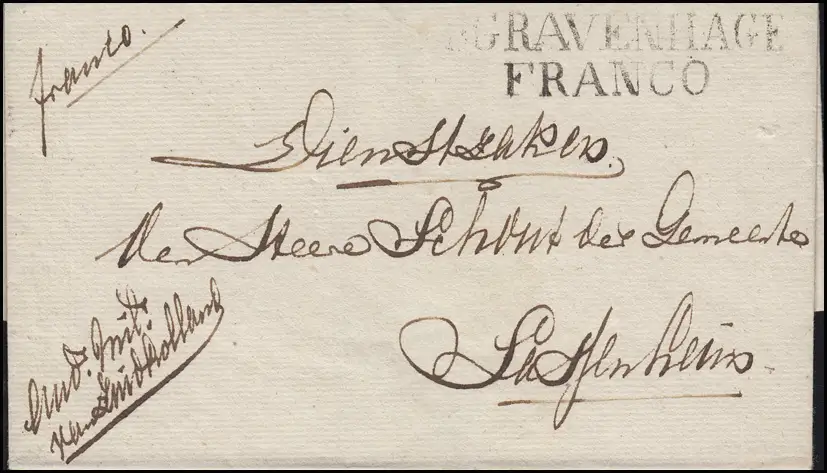 franco.
SGRAVENHAGE
FRANCO
Dienstzaken.
Den Heere Schout der Gemeente
Sassenheim
van Zuidholland